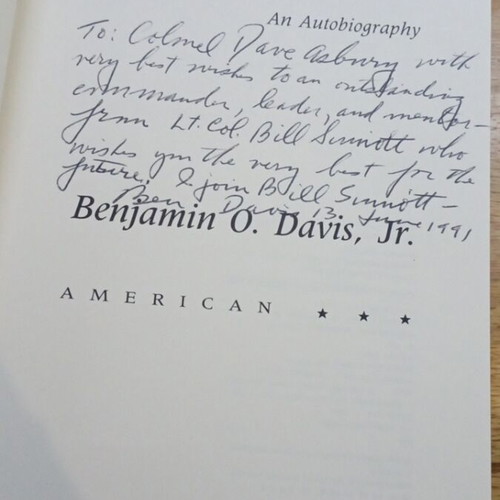 An Autobiography
To: Colonel Dave Asbury with
very best wishes to an outstanding
commander, leader, and mentor -
from Lt. Col. Bill Sinnott who
wishes you the very best for the
future. I join Bill Sinnott -
Ben Davis 13 June 1991
Benjamin O. Davis, Jr.
AMERICAN ★ ★ ★